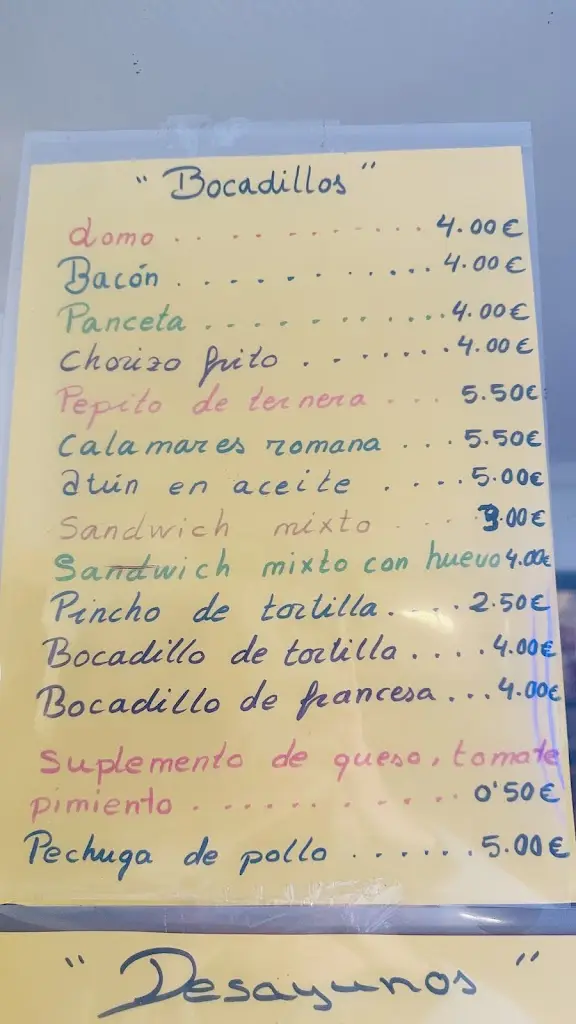 "Bocadillos"
Lomo . . . . . . . . . . . . 4.00€
Bacón . . . . . . . . . . . 4.00€
Panceta . . . . . . . . . . . 4.00€
Chorizo frito . . . . . . . . 4.00€
Pepito de ternera . . . 5.50€
Calamares romana . . . 5.50€
atún en aceite . . . . 5.00€
Sandwich mixto . . . . 3.00€
Sandwich mixto con huevo 4.00€
Pincho de tortilla . . . . 2.50€
Bocadillo de tortilla . . . . 4.00€
Bocadillo de francesa . . . 4.00€
Suplemento de queso, tomate
pimiento . . . . . . . . . . 0'50€
Pechuga de pollo . . . . . . 5.00€
"Desayunos"